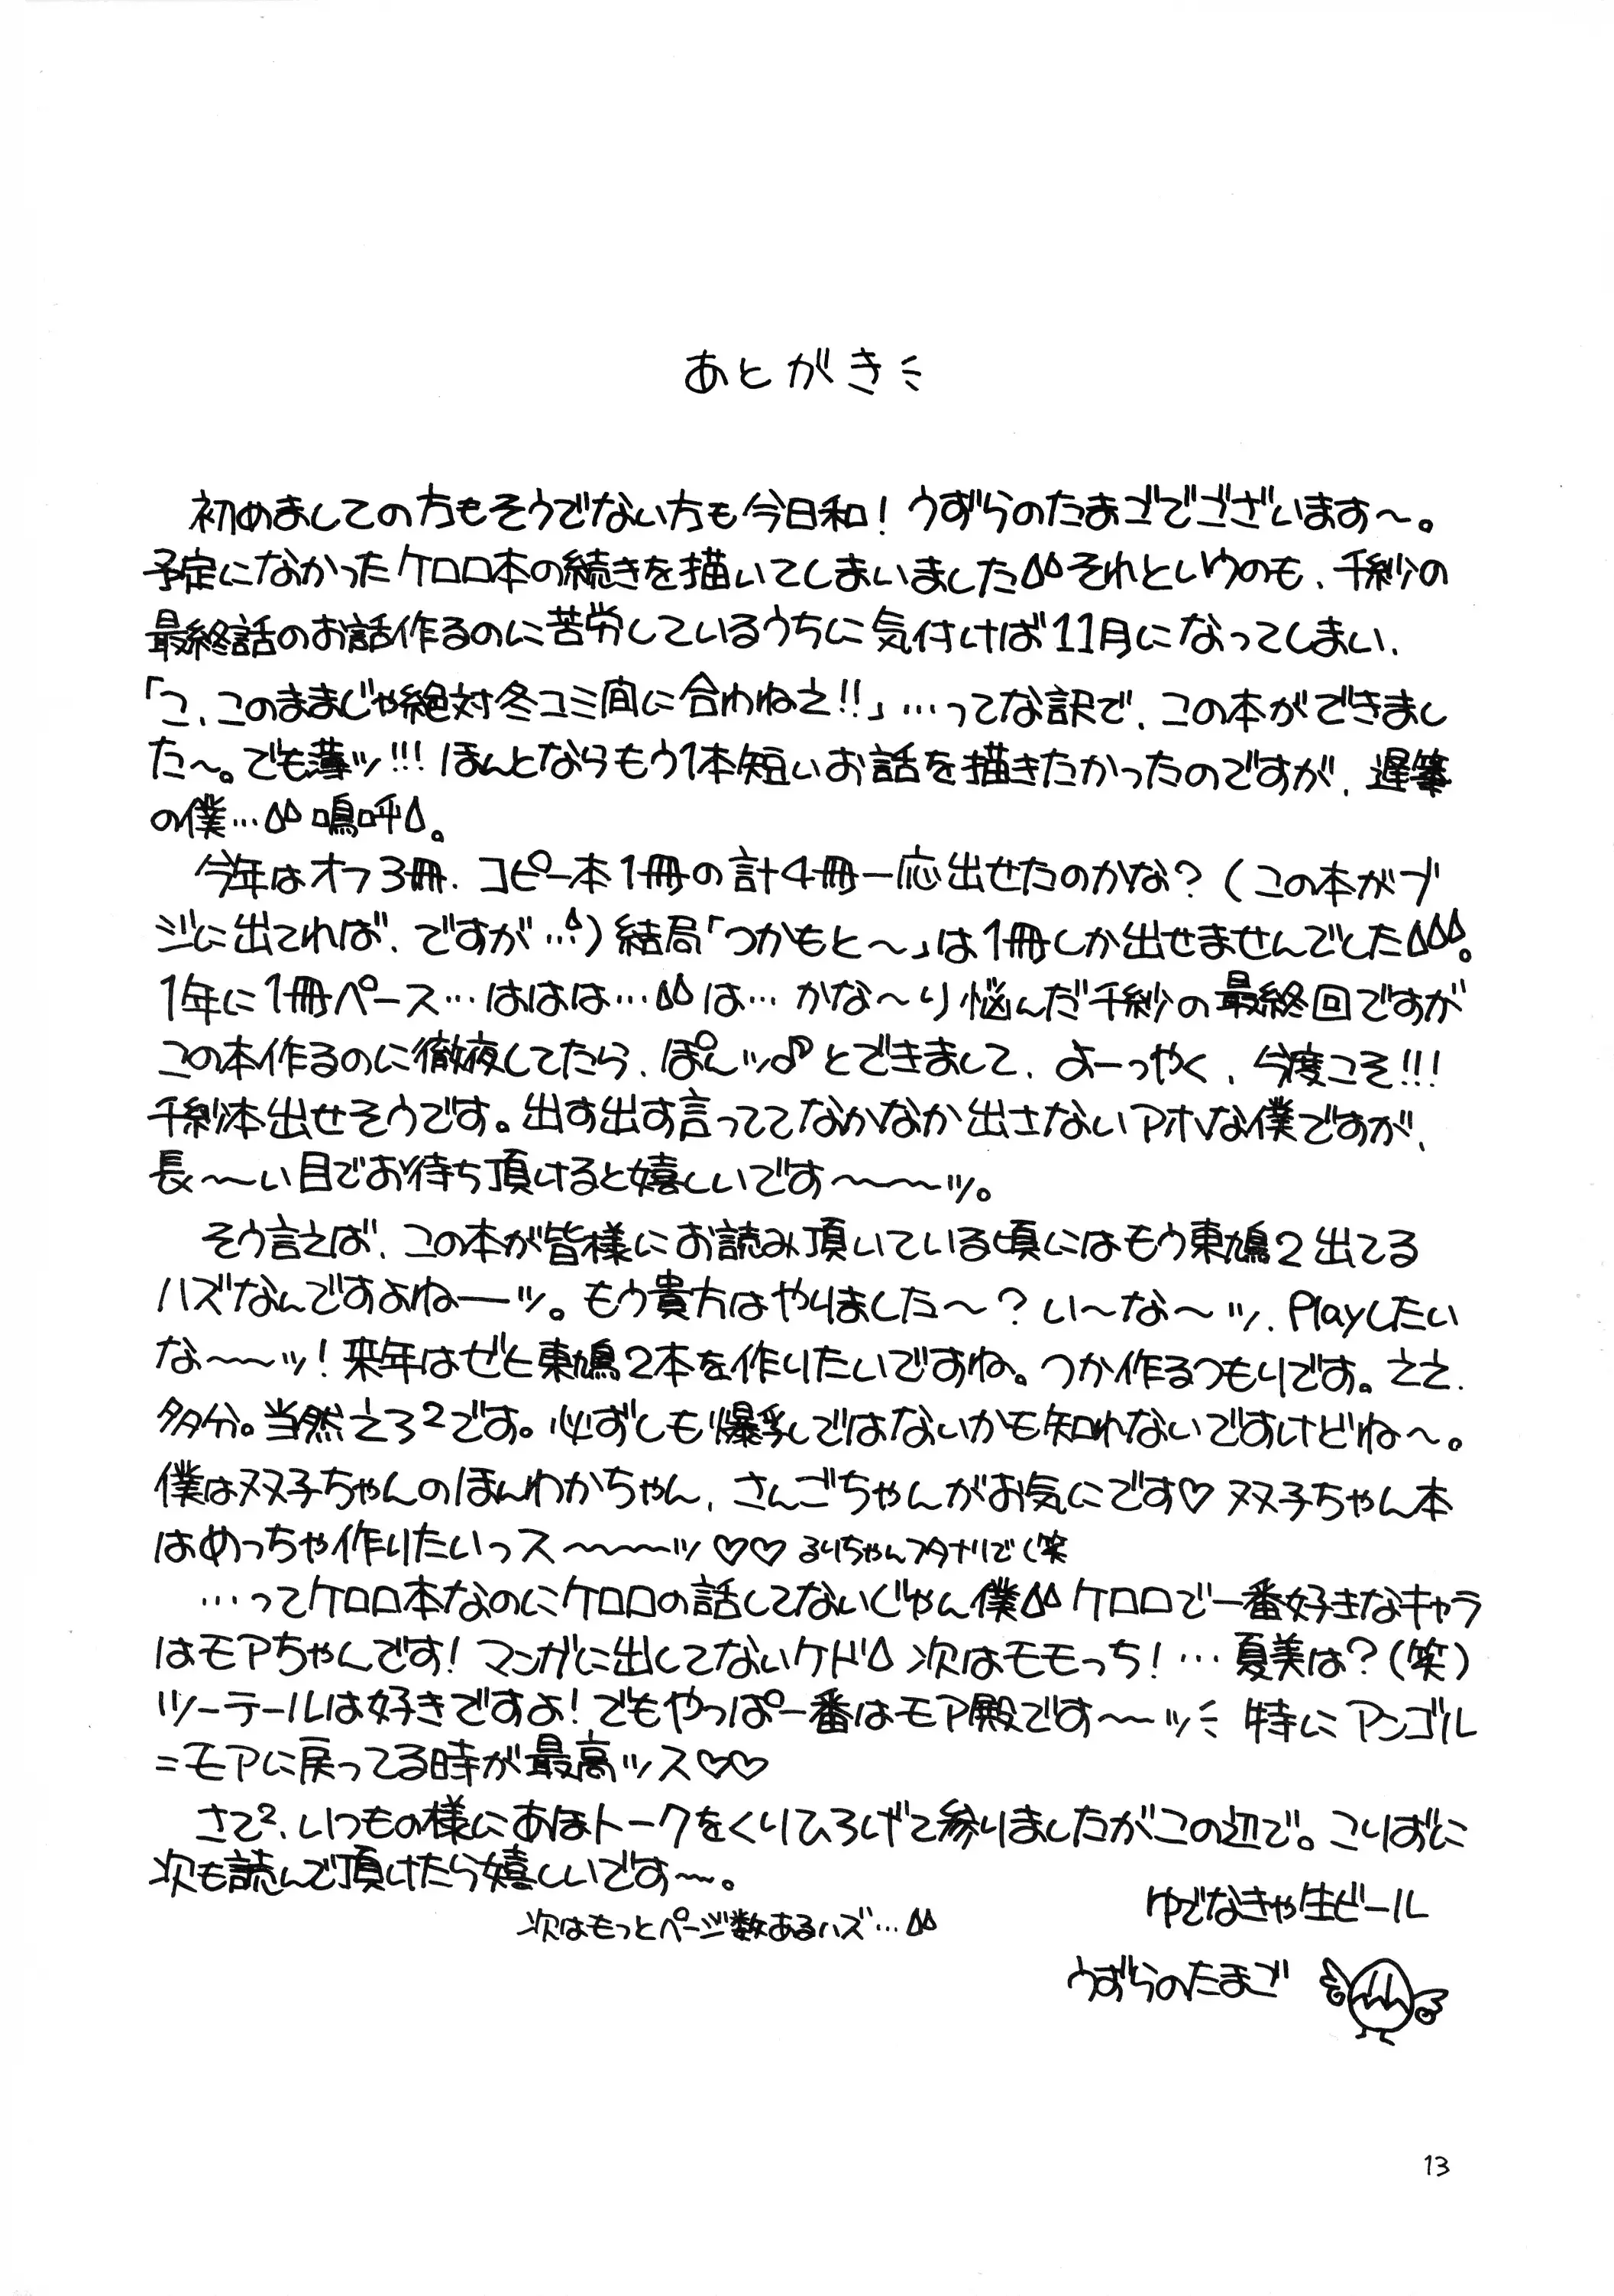 あとがき
初めましての方もそうでない方も今日和！うずらのたまごでございます〜。
予定になかったケロロ本の続きを描いてしまいましたそれというのも、千紗の
最終話のお話作るのに苦労しているうちに気付けば11月になってしまい、
「こ、このままじゃ絶対冬コミ間に合わねえ!!」…ってな訳で、この本ができまし
た〜。でも薄ッ!!!ほんとならもう1本短いお話を描きたかったのですが、遅筆
の僕…嗚呼。
今年はオフ3冊、コピー本1冊の計4冊一応出せたのかな？(この本がブ
ジに出てれば、ですが…)結局「つかもと〜」は1冊しか出せませんでした。
1年に1冊ペース…ははは…は…かな〜り悩んだ千紗の最終回ですが
この本作るのに徹夜してたら、ぽんッ♪とできまして、よーっやく、今度こそ!!!
千紗本出せそうです。出す出す言っててなかなか出さないアホな僕ですが、
長〜〜い目でお待ち頂けると嬉しいです〜〜〜ッ。
そう言えば、この本が皆様にお読み頂いている頃にはもう東鳩2出てる
ハズなんですよねーーッ。もう貴方はやりました〜？い〜な〜ッ、Playしたい
な〜〜ッ！来年はぜひ東鳩2本を作りたいですね。つか作るつもりです。ええ、
多分。当然えろ²です。必ずしも爆乳ではないかも知れないですけどね〜。
僕は双子ちゃんのほんわかちゃん、さんごちゃんがお気にです♡双子ちゃん本
はめっちゃ作りたいっス〜〜〜ッ♡♡るりちゃんフタナリで(笑
…ってケロロ本なのにケロロの話してないじゃん僕ケロロで一番好きなキャラ
はモアちゃんです！マンガに出してないケド次はモモっち！…夏美は？(笑)
ツーテールは好きですよ！でもやっぱ一番はモア殿です〜〜ッ特にアンゴル
=モアに戻ってる時が最高ッス♡♡
さて²、いつもの様にあほトークをくりひろげて参りましたがこの辺で。こりずに
次も読んで頂けたら嬉しいです〜〜。
次はもっとページ数あるハズ…
ゆでなきゃ生ビール
うずらのたまご
13